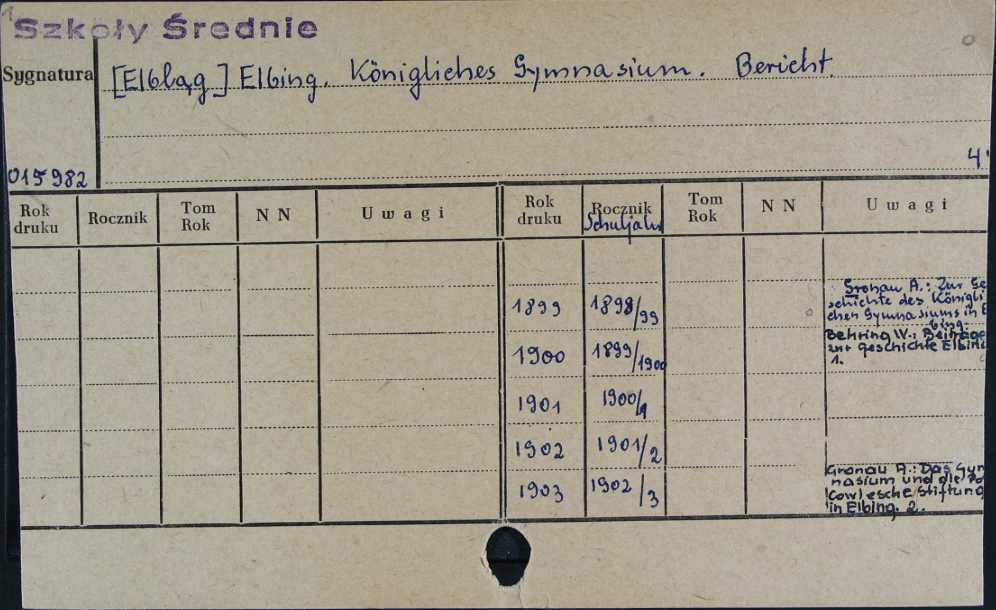 Szkoły Średnie
Sygnatura
[Elbląg] Elbing. Königliches Gymnasium. Bericht.
015982
4°
Rok druku Rocznik Tom Rok N N Uwagi Rok druku Rocznik Tom Rok N N Uwagi
Schuljahr
1899 1898/99 Gronau A.: Zur Ge
schichte des Königli
chen Gymnasiums in E
bing.
1900 1899/1900 Behring W.: Beiträge
zur Geschichte Elbin
1.
1901 1900/1
1902 1901/2
1903 1902/3 Gronau A.: Das Gym
nasium und die
cowlesche Stiftung
in Elbing. 2.